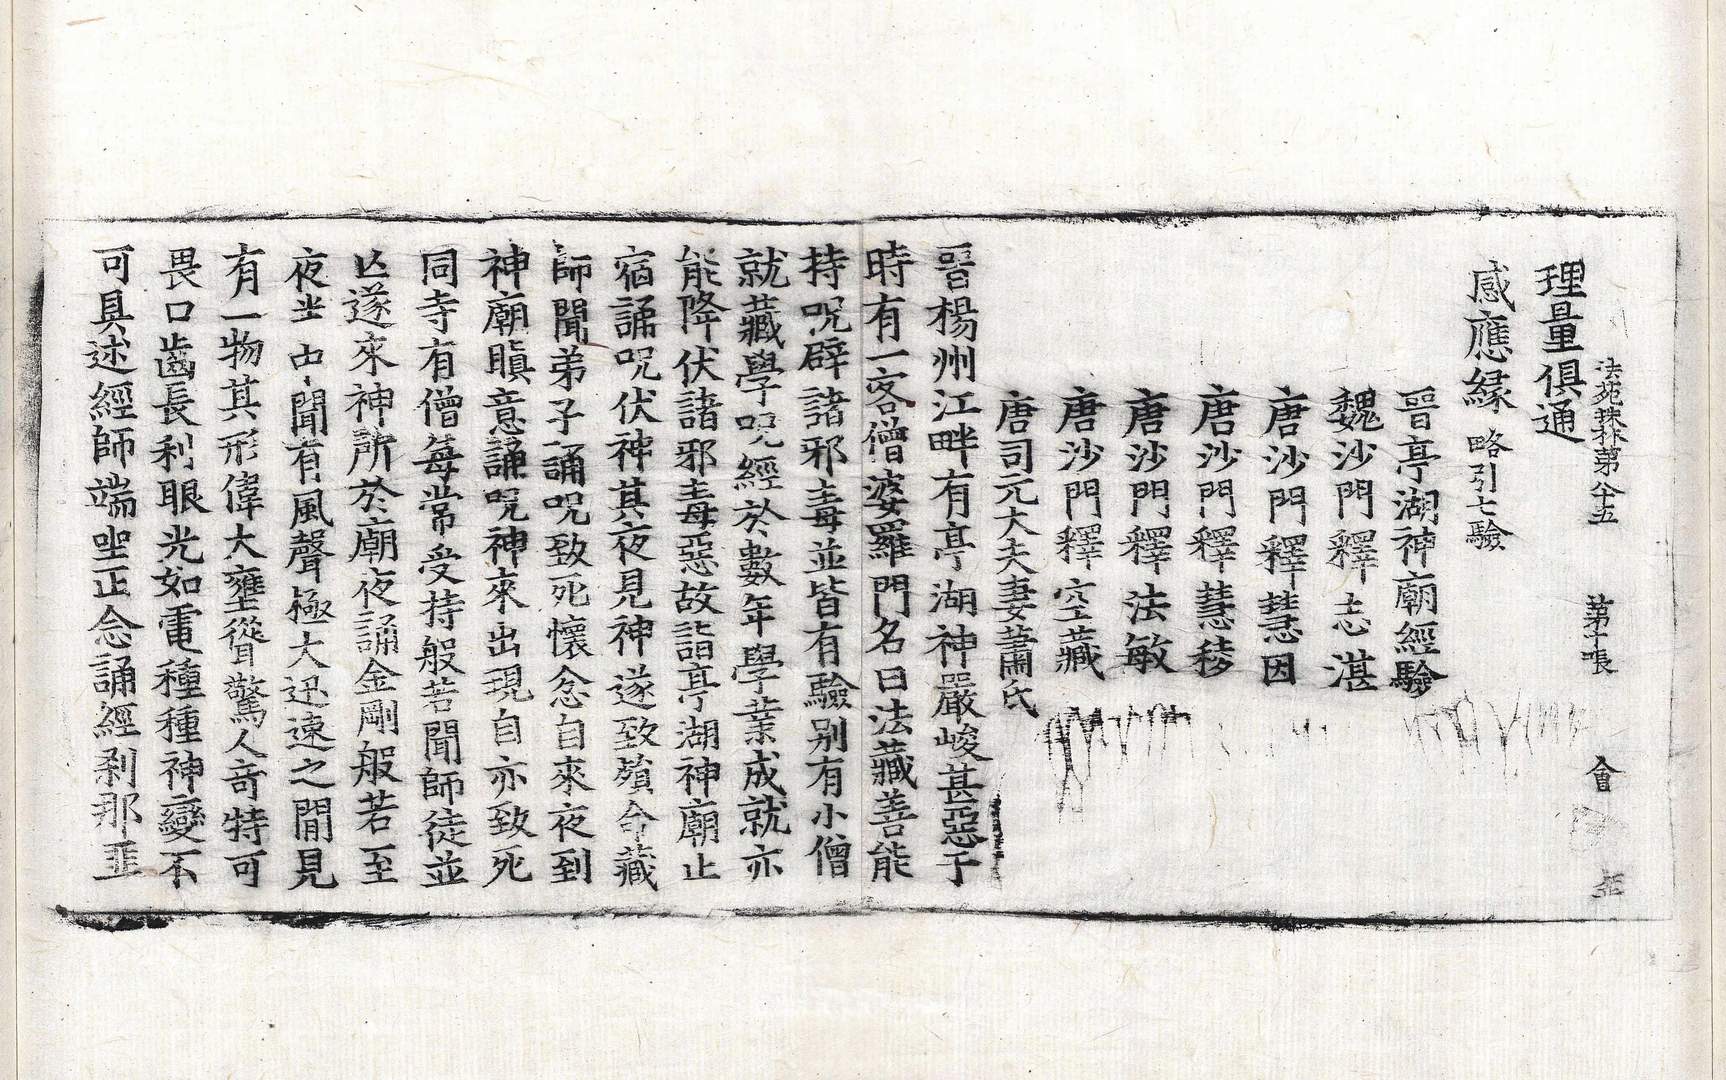 法苑珠林第八十五 第十張 會
理量俱通
感應緣 略引七驗
晉亭湖神廟經驗
魏沙門釋志湛
唐沙門釋慧因
唐沙門釋慧稜
唐沙門釋法敏
唐沙門釋空藏
唐司元大夫妻蕭氏
晉楊州江畔有亭湖神嚴峻甚惡于
時有一客僧婆羅門名曰法藏善能
持呪辟諸邪毒並皆有驗别有小僧
就藏學呪經於數年學業成就亦
能降伏諸邪毒惡故詣亭湖神廟止
宿誦呪伏神其夜見神遂致殞命藏
師聞弟子誦呪致死懷忿自來夜到
神廟瞋意誦呪神來出現自亦致死
同寺有僧每常受持般若聞師徒並
亾遂來神所於廟夜誦金剛般若至
夜半中聞有風聲極大迅速之間見
有一物其形偉大壅聳驚人奇特可
畏口齒長利眼光如電種種神變不
可具述經師端坐正念誦經刹那匪